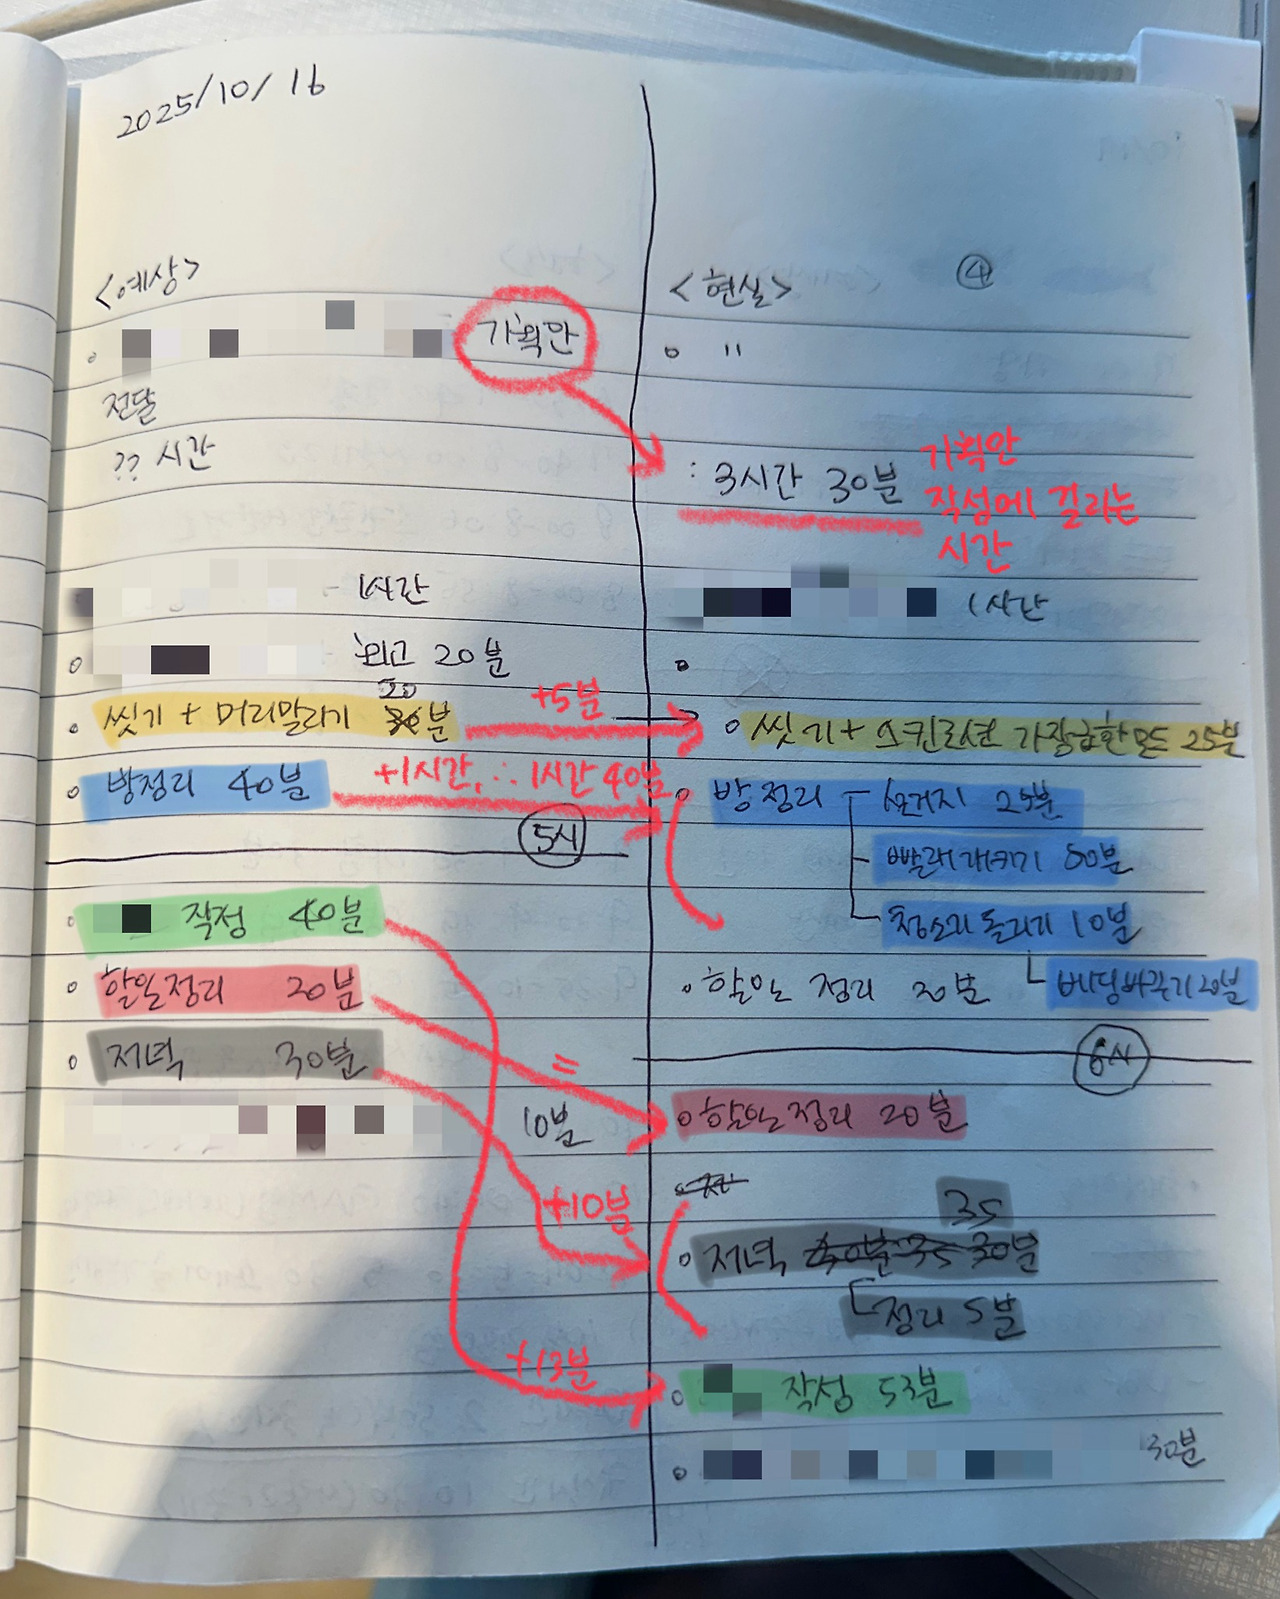 2025/10/16
<예상>
기획안
전달
?? 시간
1시간
외고 20분
20
씻기 + 머리말리기 30분
방정리 40분
5시
작성 40분
할일정리 20분
저녁 30분
10분
+5분
+1시간, ∴ 1시간 40분
=
+10분
+13분
<현실>
④
"
: 3시간 30분
기획안
작성에 걸리는
시간
1시간
씻기 + 스킨로션 가장급한모드 25분
방정리 설거지 25분
빨래개키기 50분
청소기돌리기 10분
베딩바꾸기 20분
할일 정리 20분
6시
할일정리 20분
35
저녁 40분 35 30분
정리 5분
작성 53분
30분